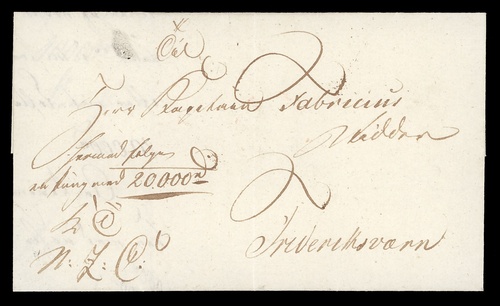 Til
Herr Kapitain Fabricius
Ridder
hermed følger
en pung med 20,000 rd
K
N: Z: C:
Frederiksværn